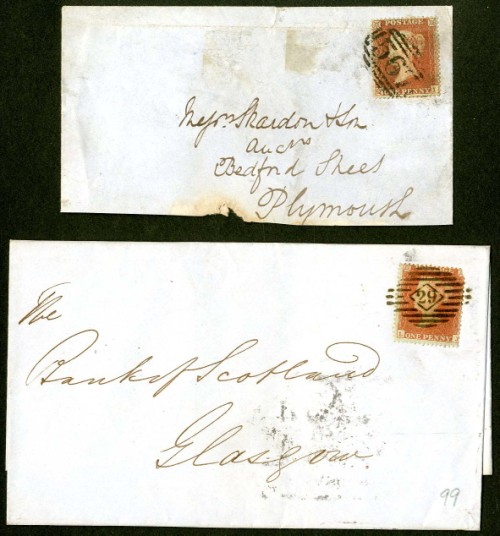 POSTAGE
567
ONE PENNY
Messrs Skardon & Son
Auctrs
Bedford Street
Plymouth
29
ONE PENNY
The
Bank of Scotland
Glasgow
99